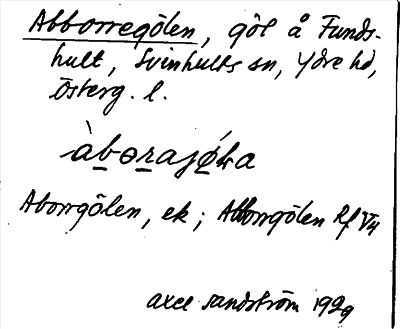 Abborregölen, göl å Funds-
hult, Svinhults sn, Ydre hd,
Österg. l.
àbɵrajǿła
Aborrgölen, ek; Abborrgölen Rf V4
Axel Sandström 1929